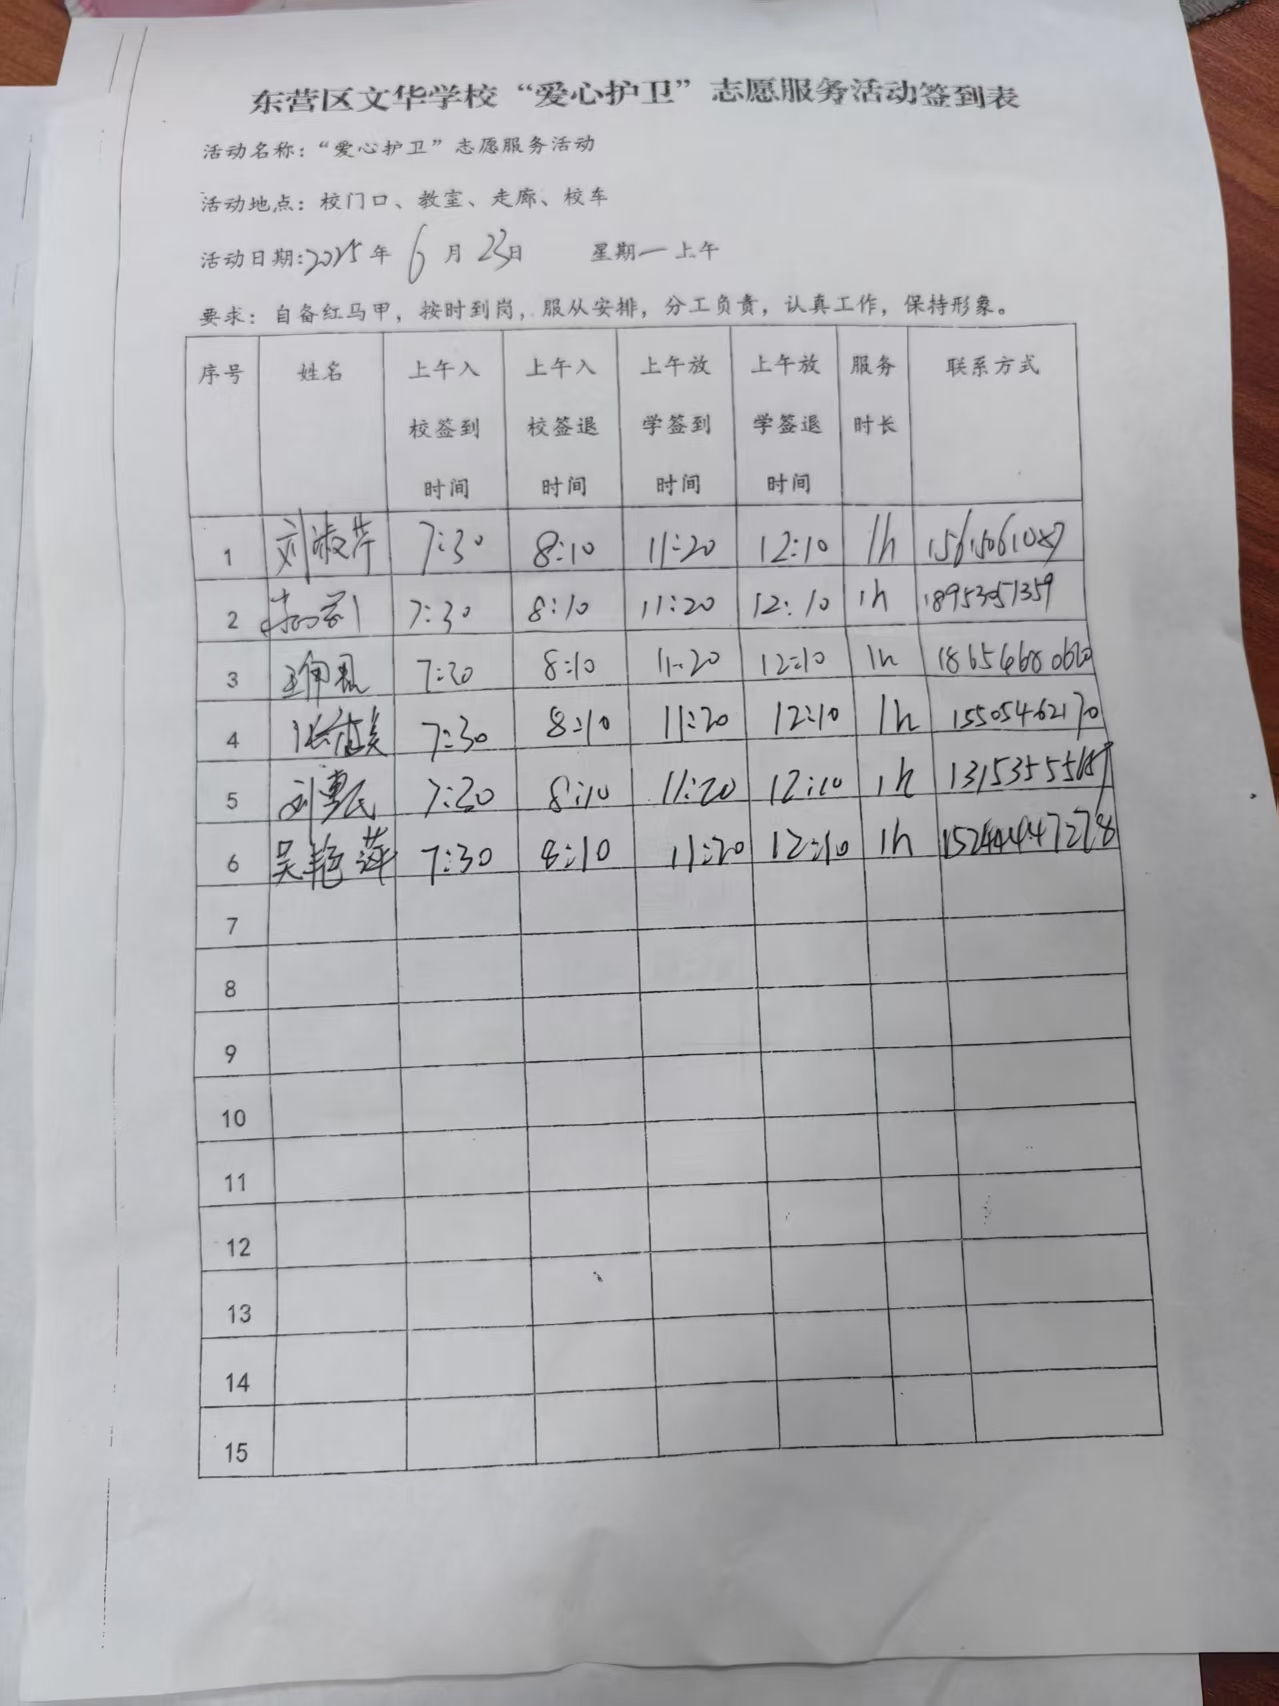 东营区文华学校“爱心护卫”志愿服务活动签到表
活动名称：“爱心护卫”志愿服务活动
活动地点：校门口、教室、走廊、校车
活动日期:2025年 6月 23日 星期一上午
要求：自备红马甲，按时到岗，服从安排，分工负责，认真工作，保持形象。
序号 姓名 上午入校签到时间 上午入校签退时间 上午放学签到时间 上午放学签退时间 服务时长 联系方式
1 刘淑萍 7:30 8:10 11:20 12:10 1h 15615061087
2 7:30 8:10 11:20 12:10 1h 18953051359
3 7:20 8:10 11:20 12:10 1h 18654680620
4 7:30 8:10 11:20 12:10 1h 15505462170
5 刘惠民 7:20 8:10 11:20 12:10 1h
6 吴艳萍 7:30 8:10 11:20 12:10 1h
7
8
9
10
11
12
13
14
15